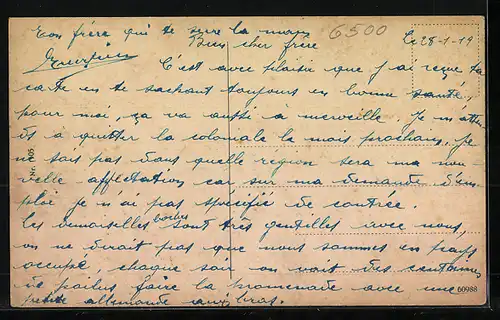 Ton frère qui te serre la main
6500
Le 28-1-19
Bien cher frère
C'est avec plaisir que j'ai reçue ta
carte en te sachant toujours en bonne santé,
pour moi, ça va aussi à merveille. Je m'atten
ds à quitter la coloniale le mois prochain, je
ne sais pas dans quelle région sera ma nou-
velle affectation car sur ma demande d'em-
ploi je n'ai pas spécifié de contrée.
Les demoiselles boches sont très gentilles avec nous,
on ne dirait pas que nous sommes en pays
occupé, chaque soir on voit des centaines
de poilus faire la promenade avec une
petite allemande aux bras.
Nr. 405
60988